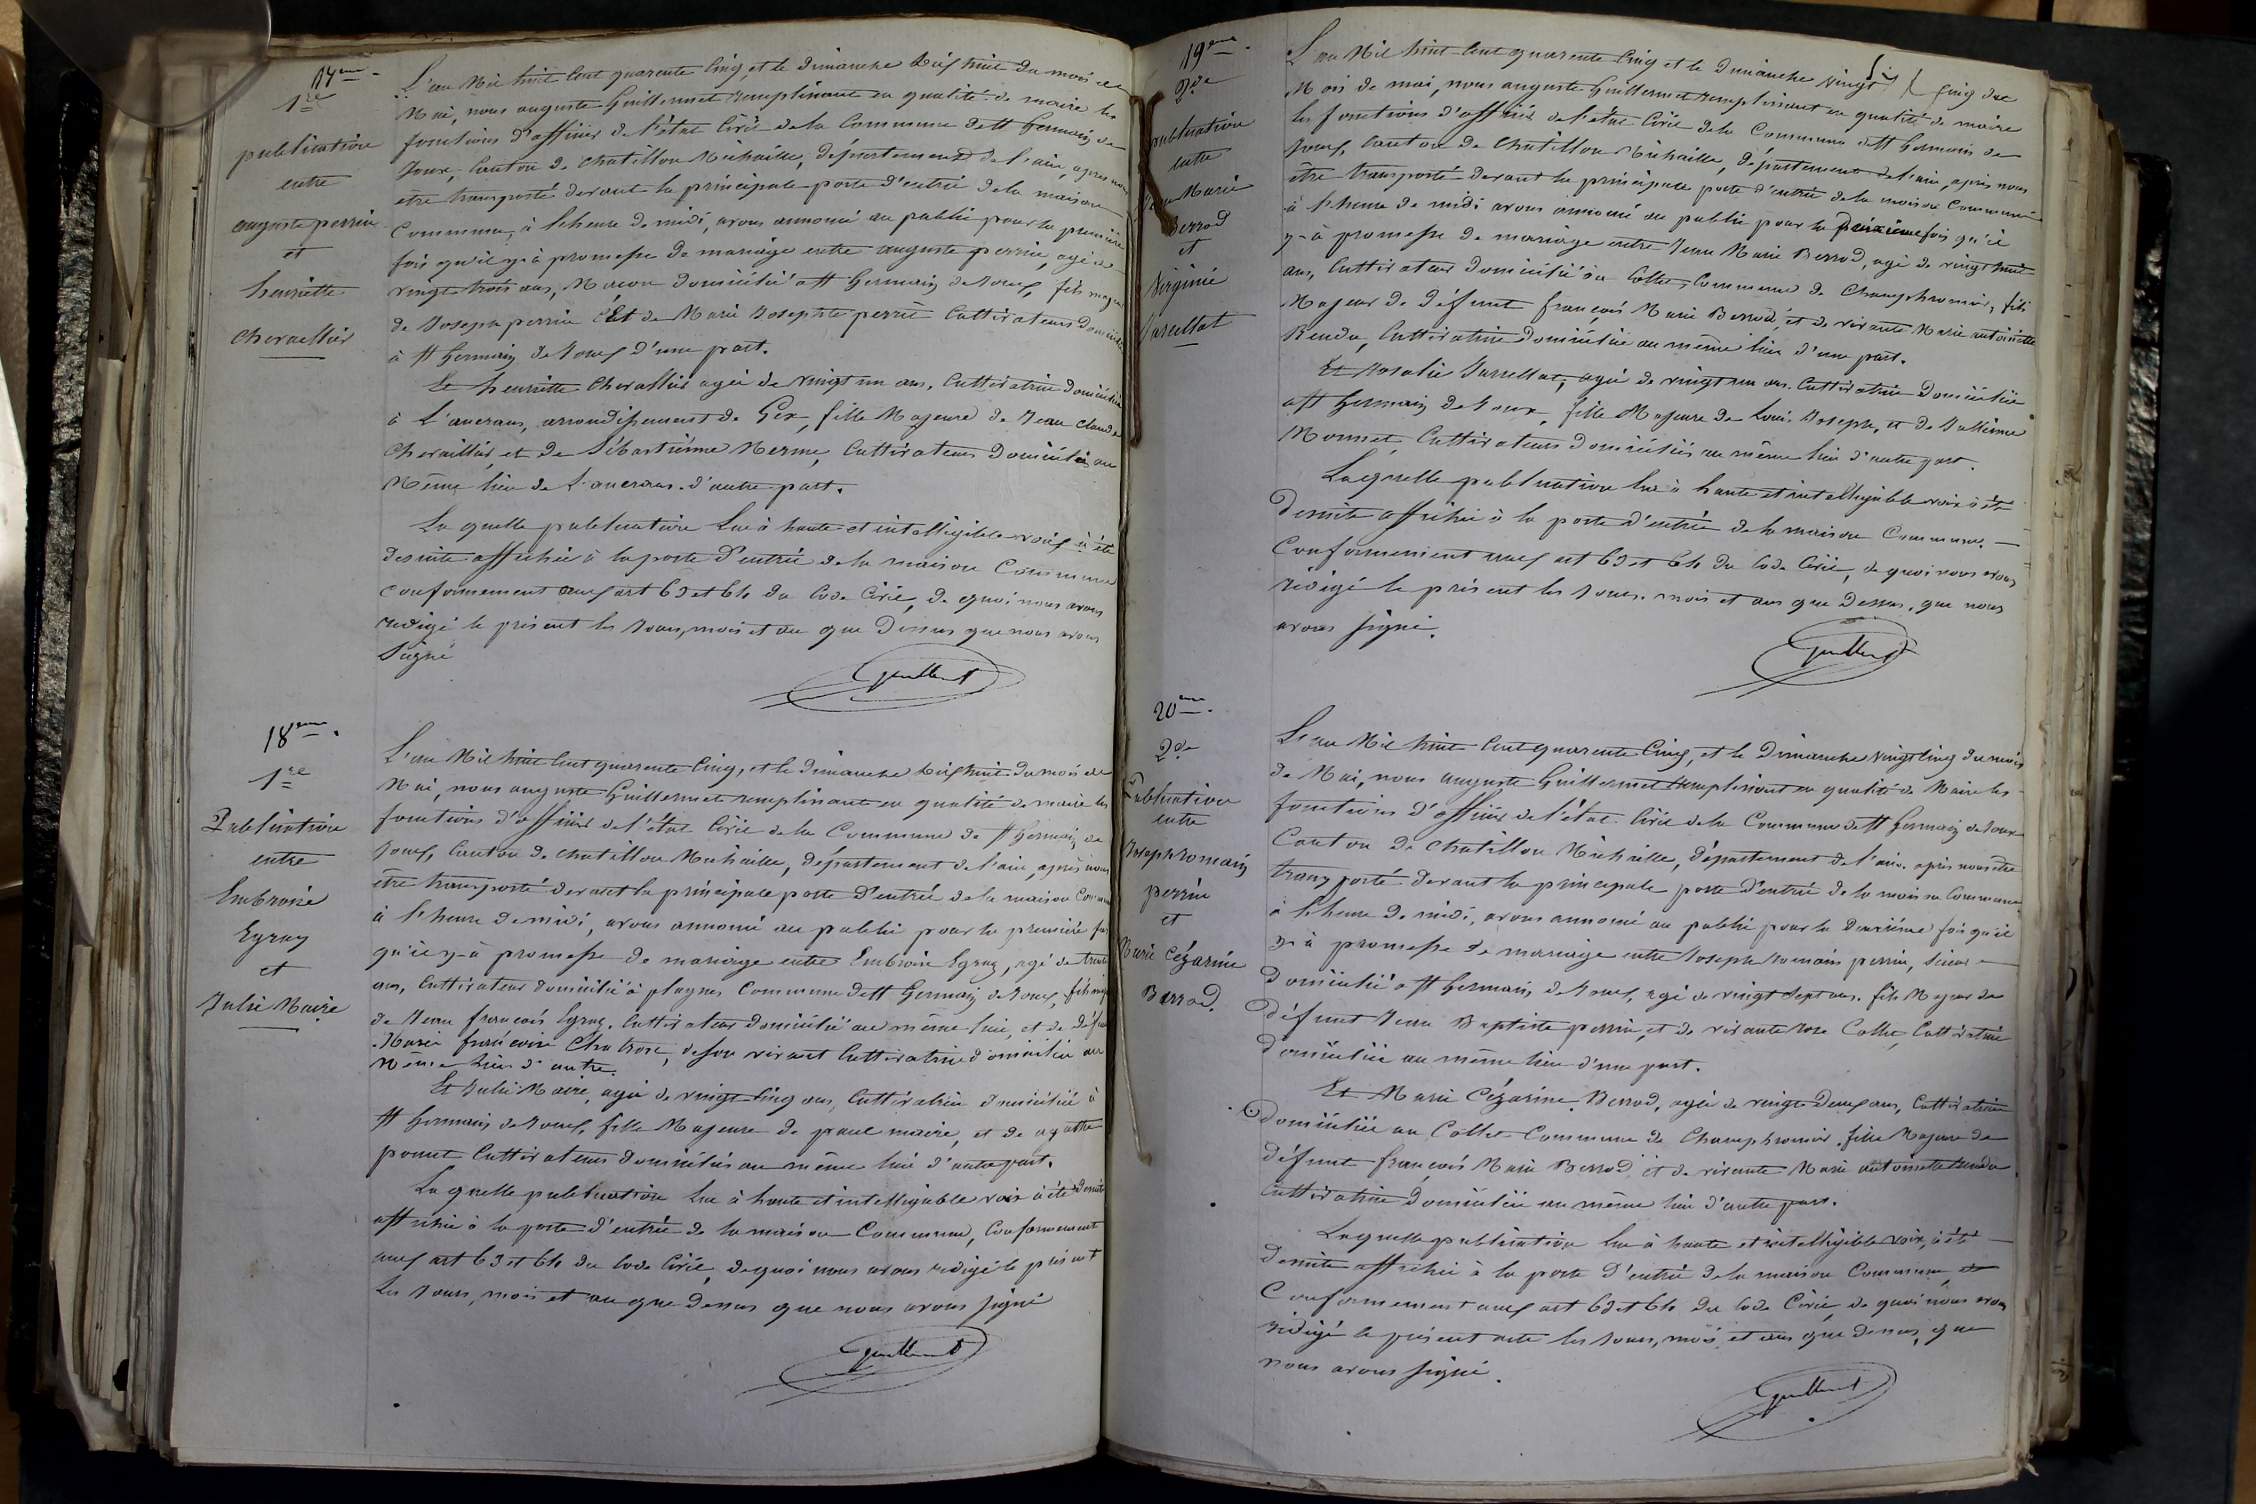 17eme.
1re
publication
entre
auguste perrin
et
henriette
chevallier
L'an Mil huit Cent quarente Cinq et le dimanche dix huit du mois de
Mai, nous auguste Guillermet remplissant en qualité de maire les
fonctions d'officier de l'état Civil de la Commune de St Germain de
Joux, Canton de Chatillon Michaille, département de l'ain, apres nous
être transporté devant la principale porte d'entrée de la maison
Commune, à l'heure de midi, avons annoncé au public pour la premiere
fois qu'il y à promesse de mariage entre auguste perrin, agé de
vingt trois ans, Maçon domicilié a St Germain de Joux, fils majeur
de Joseph perrin Et de Marie Josephte perrin Cultivateurs domiciliés
à St Germain de Joux d'une part.
Et henriette Chevallier agée de vingt un ans, Cultivatrice domiciliée
à L'ancrans, arrondissement de Gex, fille Majeure de Jean Claude
Chevallier, et de Sébastienne Mermes, Cultivateurs domiciliés au
Même lieu de L'ancrans. d'autre part.
La quelle publication lue à haute et intelligible voix à été
desuite affichée à la porte d'entrée de la maison Commune
conformement aux art 63 et 64 du Code Civil, de quoi nous avons
redigé le présent les Jours, mois et an que Dessus que nous avons
Signé
Guillermet
18eme.
1re
Publication
entre
Embroise
Egraz
et
Julie Maire
L'an Mil huit Cent quarente Cinq, et le dimanche dix huit du mois de
Mai, nous auguste Guillermet remplissant en qualité de maire les
fonctions d'officier de l'état Civil de la Commune de St Germain de
Joux, Canton de Chatillon Michaille, département de l'ain, après nous
être transporté devant la principale porte d'entrée de la maison Commune
à l'heure de midi, avons annoncé au public pour la première fois
qu'il y à promesse de mariage entre Embroise Egraz, agé de trente
ans, Cultivateur domicilié à plagnes Commune de St Germain de Joux, fils majeur
de Jean françois Egraz, Cultivateur domicilié au même lieu, et de défunte
Marie françoise, de son vivant Cultivatrice domiciliée au
même lieu d'autre.
Et Julie Maire, agée de vingt Cinq ans, Cultivatrice domiciliée à
St Germain de Joux, fille Majeure de paul maire, et de agathe
poncet Cultivateurs domiciliés au même lieu d'autre part.
La quelle publication lue à haute et intelligible voix à été desuite
affichée à la porte d'entrée de la maison Commune, Conformement
aux art 63 et 64 du Code Civil, de quoi nous avons redigé le présent
Les Jours, mois et an que Dessus que nous avons signé
Guillermet
19eme.
2de
publication
entre
Jean Marie
Berrod
et
Virginie
Jarcellat
L'an Mil huit Cent quarente Cinq et le dimanche vingt Cinq du
Mois de mai, nous auguste Guillermet remplissant en qualité de maire
les fonctions d'officier de l'état Civil de la Commune de St Germain de
Joux, Canton de Chatillon Michaille, département de l'ain, après nous
être transporté devant la principale porte d'entrée de la maison Commune
à l'heure de midi avons annoncé au public pour la deuxieme fois qu'il
y à promesse de mariage entre Jean Marie Berrod, agé de vingt huit
ans, Cultivateur domicilié au Collet, Commune de Champfromier, fils
Majeur de défunt françois Marie Berrod, et de vivante Marie antoinette
Rendu, Cultivatrice domiciliée au même lieu d'une part.
Et Rosalie Jarcellat, agée de vingt un ans. Cultivatrice domiciliée
a St Germain de Joux, fille Majeure de Louis Joseph, et de Julienne
Monnet, Cultivateurs domiciliés au même lieu d'autre part.
Laquelle publication lue à haute et intelligible voix à été
desuite affichée à la porte d'entrée de la maison Commune.
Conformement aux art 63 et 64 du Code Civil, de quoi nous avons
rédigé le présent les Jours, mois et ans que Dessus, que nous
avons signé.
Guillermet
20eme.
2de
Publication
entre
Joseph romain
perrin
et
Marie Cézarine
Berrod.
L'an Mil huit Cent quarente Cinq, et le Dimanche vingt Cinq du mois
de Mai, nous auguste Guillermet remplissant en qualité de Maire les
fonctions d'officier de l'état Civil de la Commune de St Germain de Joux
Canton de Chatillon Michaille, département de l'ain. après nous être
transporté devant la principale porte d'entrée de la maison Commune
à l'heure de midi, avons annoncé au public pour la deuxième fois qu'il
y à promesse de mariage entre Joseph romain perrin, scieur
domicilié a St Germain de Joux, agé de vingt sept ans. fils Majeur de
défunt Jean Baptiste perrin, et de vivante rose Collet, Cultivatrice
domiciliée au même lieu d'une part.
Et Marie Cézarine Berrod, agée de vingt deux ans, Cultivatrice
domiciliée au Collet Commune de Champfromier, fille Majeure de
défunt françois Marie Berrod, et de vivante Marie antoinette Rendu
Cultivatrice domiciliée au même lieu d'autre part.
Laquelle publication lue à haute et intelligible voix, à été
desuite affichée à la porte d'entrée de la maison Commune, et
Conformement aux art 63 et 64 du Code Civil, de quoi nous avons
redigé le présent acte les Jours, mois, et ans que dessus, que
nous avons signé.
Guillermet